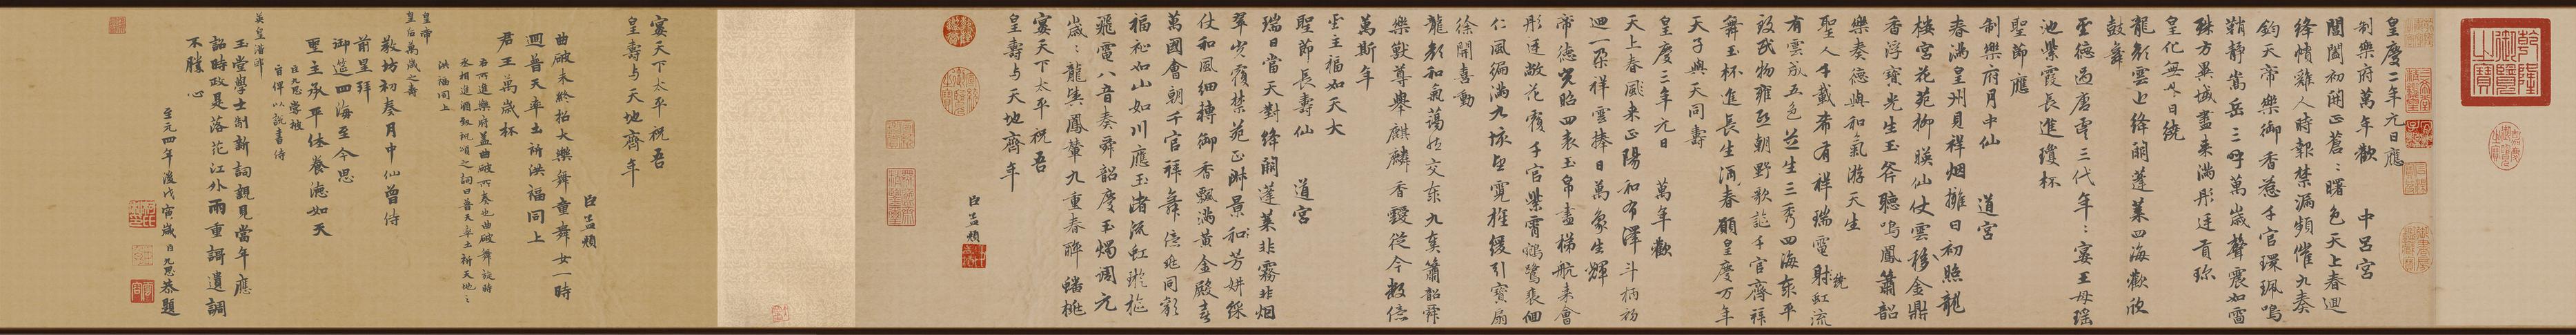 乾隆御覽之寶
皇慶二年元日應
制樂府萬年歡　中呂宮
閶闔初開正蒼蒼曙色天上春迴
絳幘雞人時報禁漏頻催九奏
鈞天帝樂御香惹千官環珮鳴
鞘靜嵩岳三呼萬歲聲震如雷
殊方異域盡來滿彤廷貢珍
皇化無外日繞
龍顏雲上絳闕蓬萊四海歡欣
鼓舞
聖德過唐虞三代年年宴王母瑤
池紫霞長進瓊杯
聖節應
制樂府月中仙　道宮
春滿皇州見祥烟擁日初照龍
樓宮花苑柳映仙仗雲移金鼎
香浮寶光生玉斧聽鳴鳳簫韶
樂奏德與和氣游天生
聖人千載希有祥瑞電繞射虹流
有雲成五色芝生三秀四海泰平
致民物雍熙朝野歌謳千官齊拜
舞玉杯進長生酒春願皇慶万年
天子與天同壽
皇慶三年元日　萬年歡
天上春風來正陽和布澤斗柄初
迴一朵祥雲捧日萬象生輝
帝德光昭四表玉帛盡梯航來會
彤廷敞花覆千官紫霄鵷鷺裴佪
仁風徧滿九垓望霓旌緩引寶扇
徐開喜動
龍顏和氣藹然交泰九奏簫韶舜
樂獸尊舉麒麟香靉從今數億
萬斯年
聖主福如天大
聖節長壽仙　道宮
瑞日當天對絳闕蓬萊非霧非烟
翠光覆禁苑正淑景和芳妍綵
仗和風細搏御香飄滿黃金殿喜
萬國會朝千官拜舞億兆同歡
福祉如山如川應玉渚流虹璇樞
飛電八音奏舜韶慶玉燭調元
歲歲龍輿鳳輦九重春醉蟠桃
宴天下太平祝吾
皇壽与天地齊年
臣孟頫
宴天下太平祝吾
皇壽与天地齊年
臣孟頫
曲破未終招大樂舞童舞女一時
迴普天率土祈洪福同上
君王萬歲杯
右所進樂府蓋曲破所奏也曲破舞旋時
丞相進酒致祝頌之詞曰普天率土祈天地之
洪福同上
皇帝
皇后萬歲之壽
教坊初奏月中仙曾侍
前星拜
御筵四海至今思
聖主承平休養德如天
臣九思嘗被
旨俾以說書侍
英皇潛邸
玉堂學士制新詞親見當年應
詔時政是落花江外雨重詶遺調
不勝心
至元四年後戊寅歲臣九思恭題